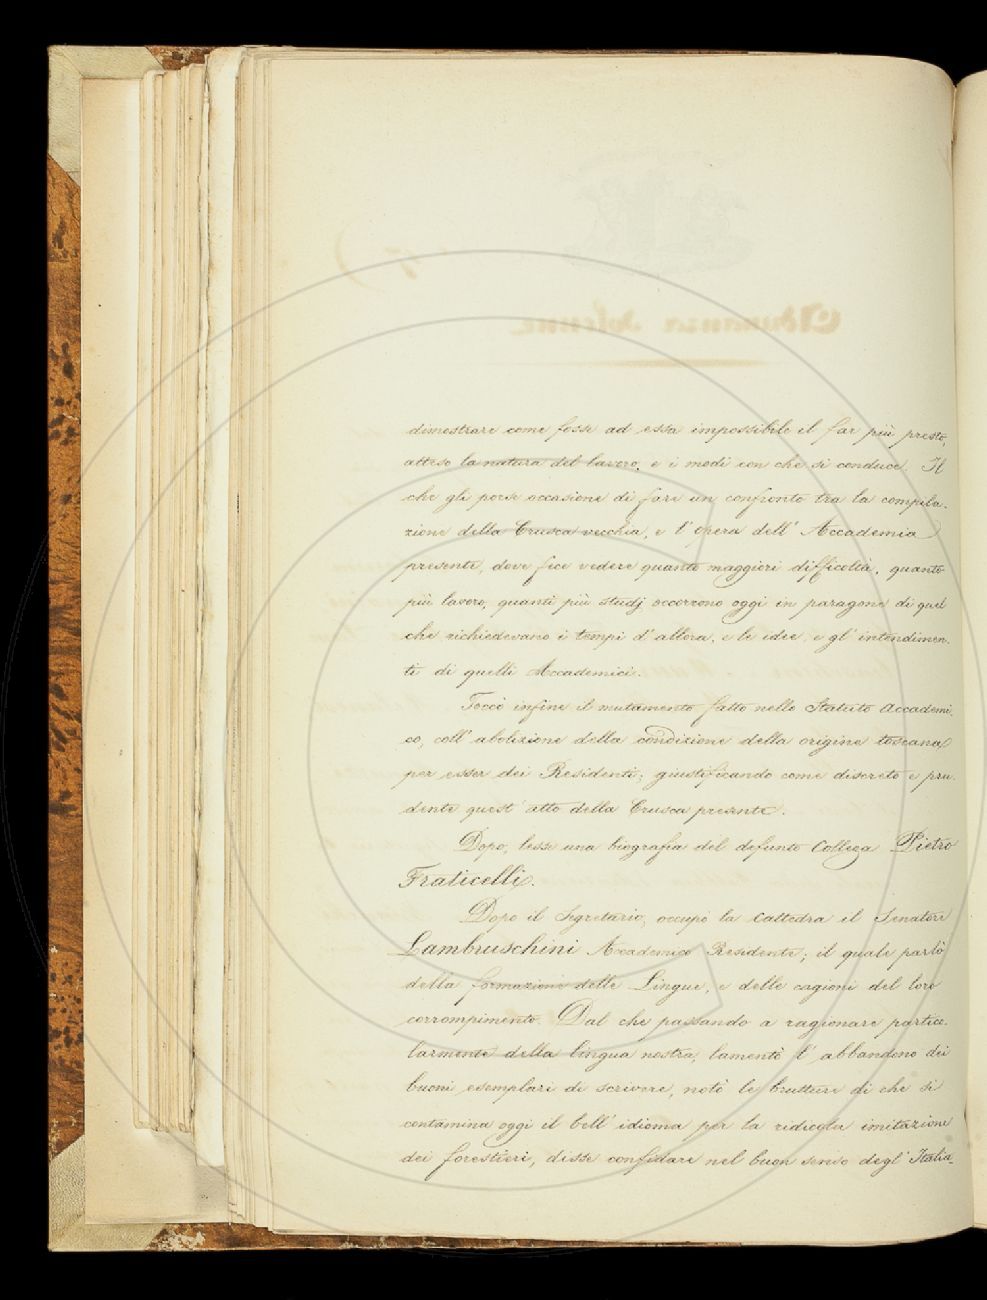 dimostrare come fosse ad essa impossibile il far più presto,
atteso la natura del lavoro, e i modi con che si conduce. Il
che gli porse occasione di fare un confronto tra la compila-
zione della Crusca vecchia, e l'opera dell'Accademia
presente, dove fece vedere quante maggiori difficoltà, quanto
più lavoro, quanti più studj occorrono oggi in paragone di quel
che richiedevano i tempi d'allora, e le idee, e gl'intendimen-
ti di quelli Accademici.
Toccò infine il mutamento fatto nello Statuto Accademi-
co, coll'abolizione della condizione della origine toscana
per esser dei Residenti; giustificando come discreto e pru-
dente quest'atto della Crusca presente.
Dopo, lesse una biografia del defunto Collega Pietro
Fraticelli.
Dopo il Segretario, occupò la Cattedra il Senatore
Lambruschini Accademico Residente; il quale parlò
della formazione delle Lingue, e delle cagioni del loro
corrompimento. Dal che passando a ragionare partico-
larmente della lingua nostra, lamentò l'abbandono dei
buoni esemplari di scrivere, notò le brutture di che si
contamina oggi il bell'idioma per la ridicola imitazione
dei forestieri, disse confidare nel buon senso degl'Italia-